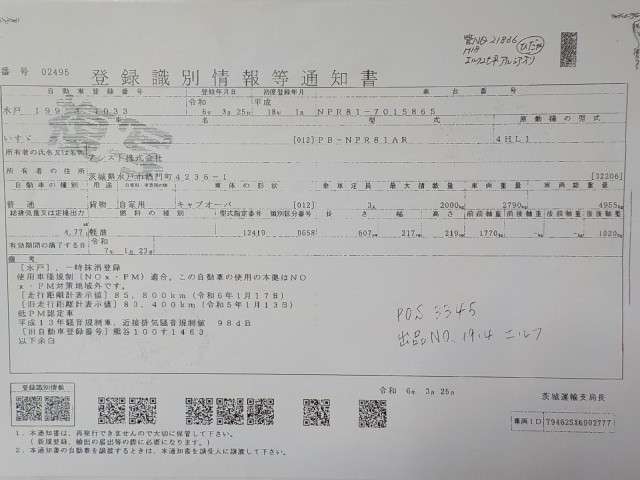 整NO 21866
H18
番号 02495 登録識別情報等通知書
自動車登録番号 登録年月日 初度登録年月 車台番号
水戸 令和 6年 3月 25日 平成 18年 1月 NPR81-7015865
車名 型式 原動機の型式
いすゞ [012] PB-NPR81AR 4HL1
所有者の氏名又は名称 アシスト株式会社
所有者の住所 茨城県水戸市鯉淵町4236-1 [32206]
自動車の種別 用途 自家用・事業用の別 車体の形状 乗車定員 最大積載量 車両重量 車両総重量
普通 貨物 自家用 キャブオーバ [012] 3人 2000kg 2790kg 4955kg
総排気量又は定格出力 燃料の種類 型式指定番号 類別区分番号 長さ 幅 高さ 前前軸重 前後軸重 後前軸重 後後軸重
4.77 軽油 12419 0658 607cm 217cm 219cm 1770kg -kg -kg 1020kg
有効期間の満了する日 令和 7年 1月 23日
備考
[水戸],一時抹消登録
使用車種規制(NOx・PM)適合、この自動車の使用の本拠はNO
x・PM対策地域外です。
[走行距離計表示値]85,800km(令和6年1月17日)
[旧走行距離計表示値]83,400km(令和5年1月13日)
低PM認定車
平成13年騒音規制車、近接排気騒音規制値 98dB
[旧自動車登録番号]熊谷100す1463
以下余白
POS 3345
出品NO. 1914 エルフ
登録識別情報
令和 6年 3月 25日 茨城運輸支局長
車両ID T9462SX6002777
1．本通知書は、再発行できませんので大切に保管して下さい。
(新規登録、輸出の届出等の際に必要になります。)
2．本通知書の自動車を譲渡するときは、本通知書を譲受人に譲渡して下さい。